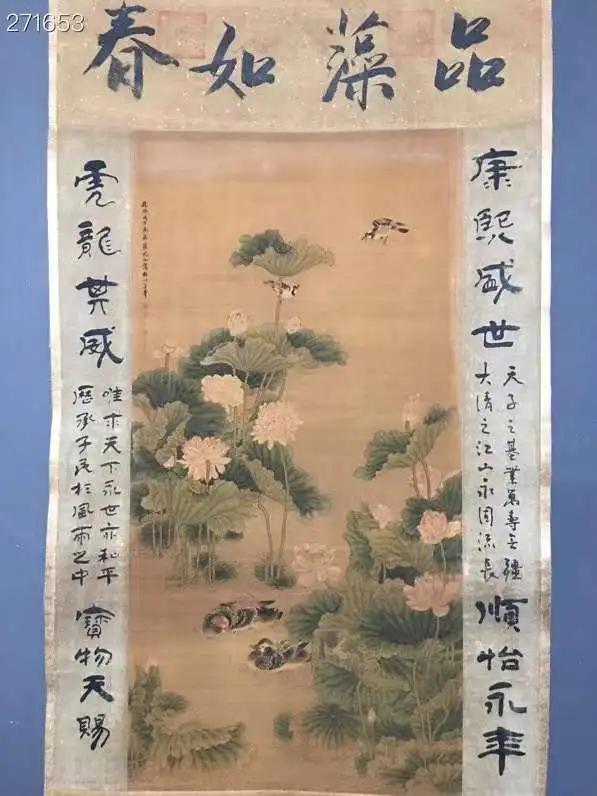 271653
品藻如春
康熙盛世
天子之基業萬壽无疆
大清之江山永固流長
順怡永年
虎龍其威
唯求天下永世亦和平
歷承子民於風雨之中
寶物天賜